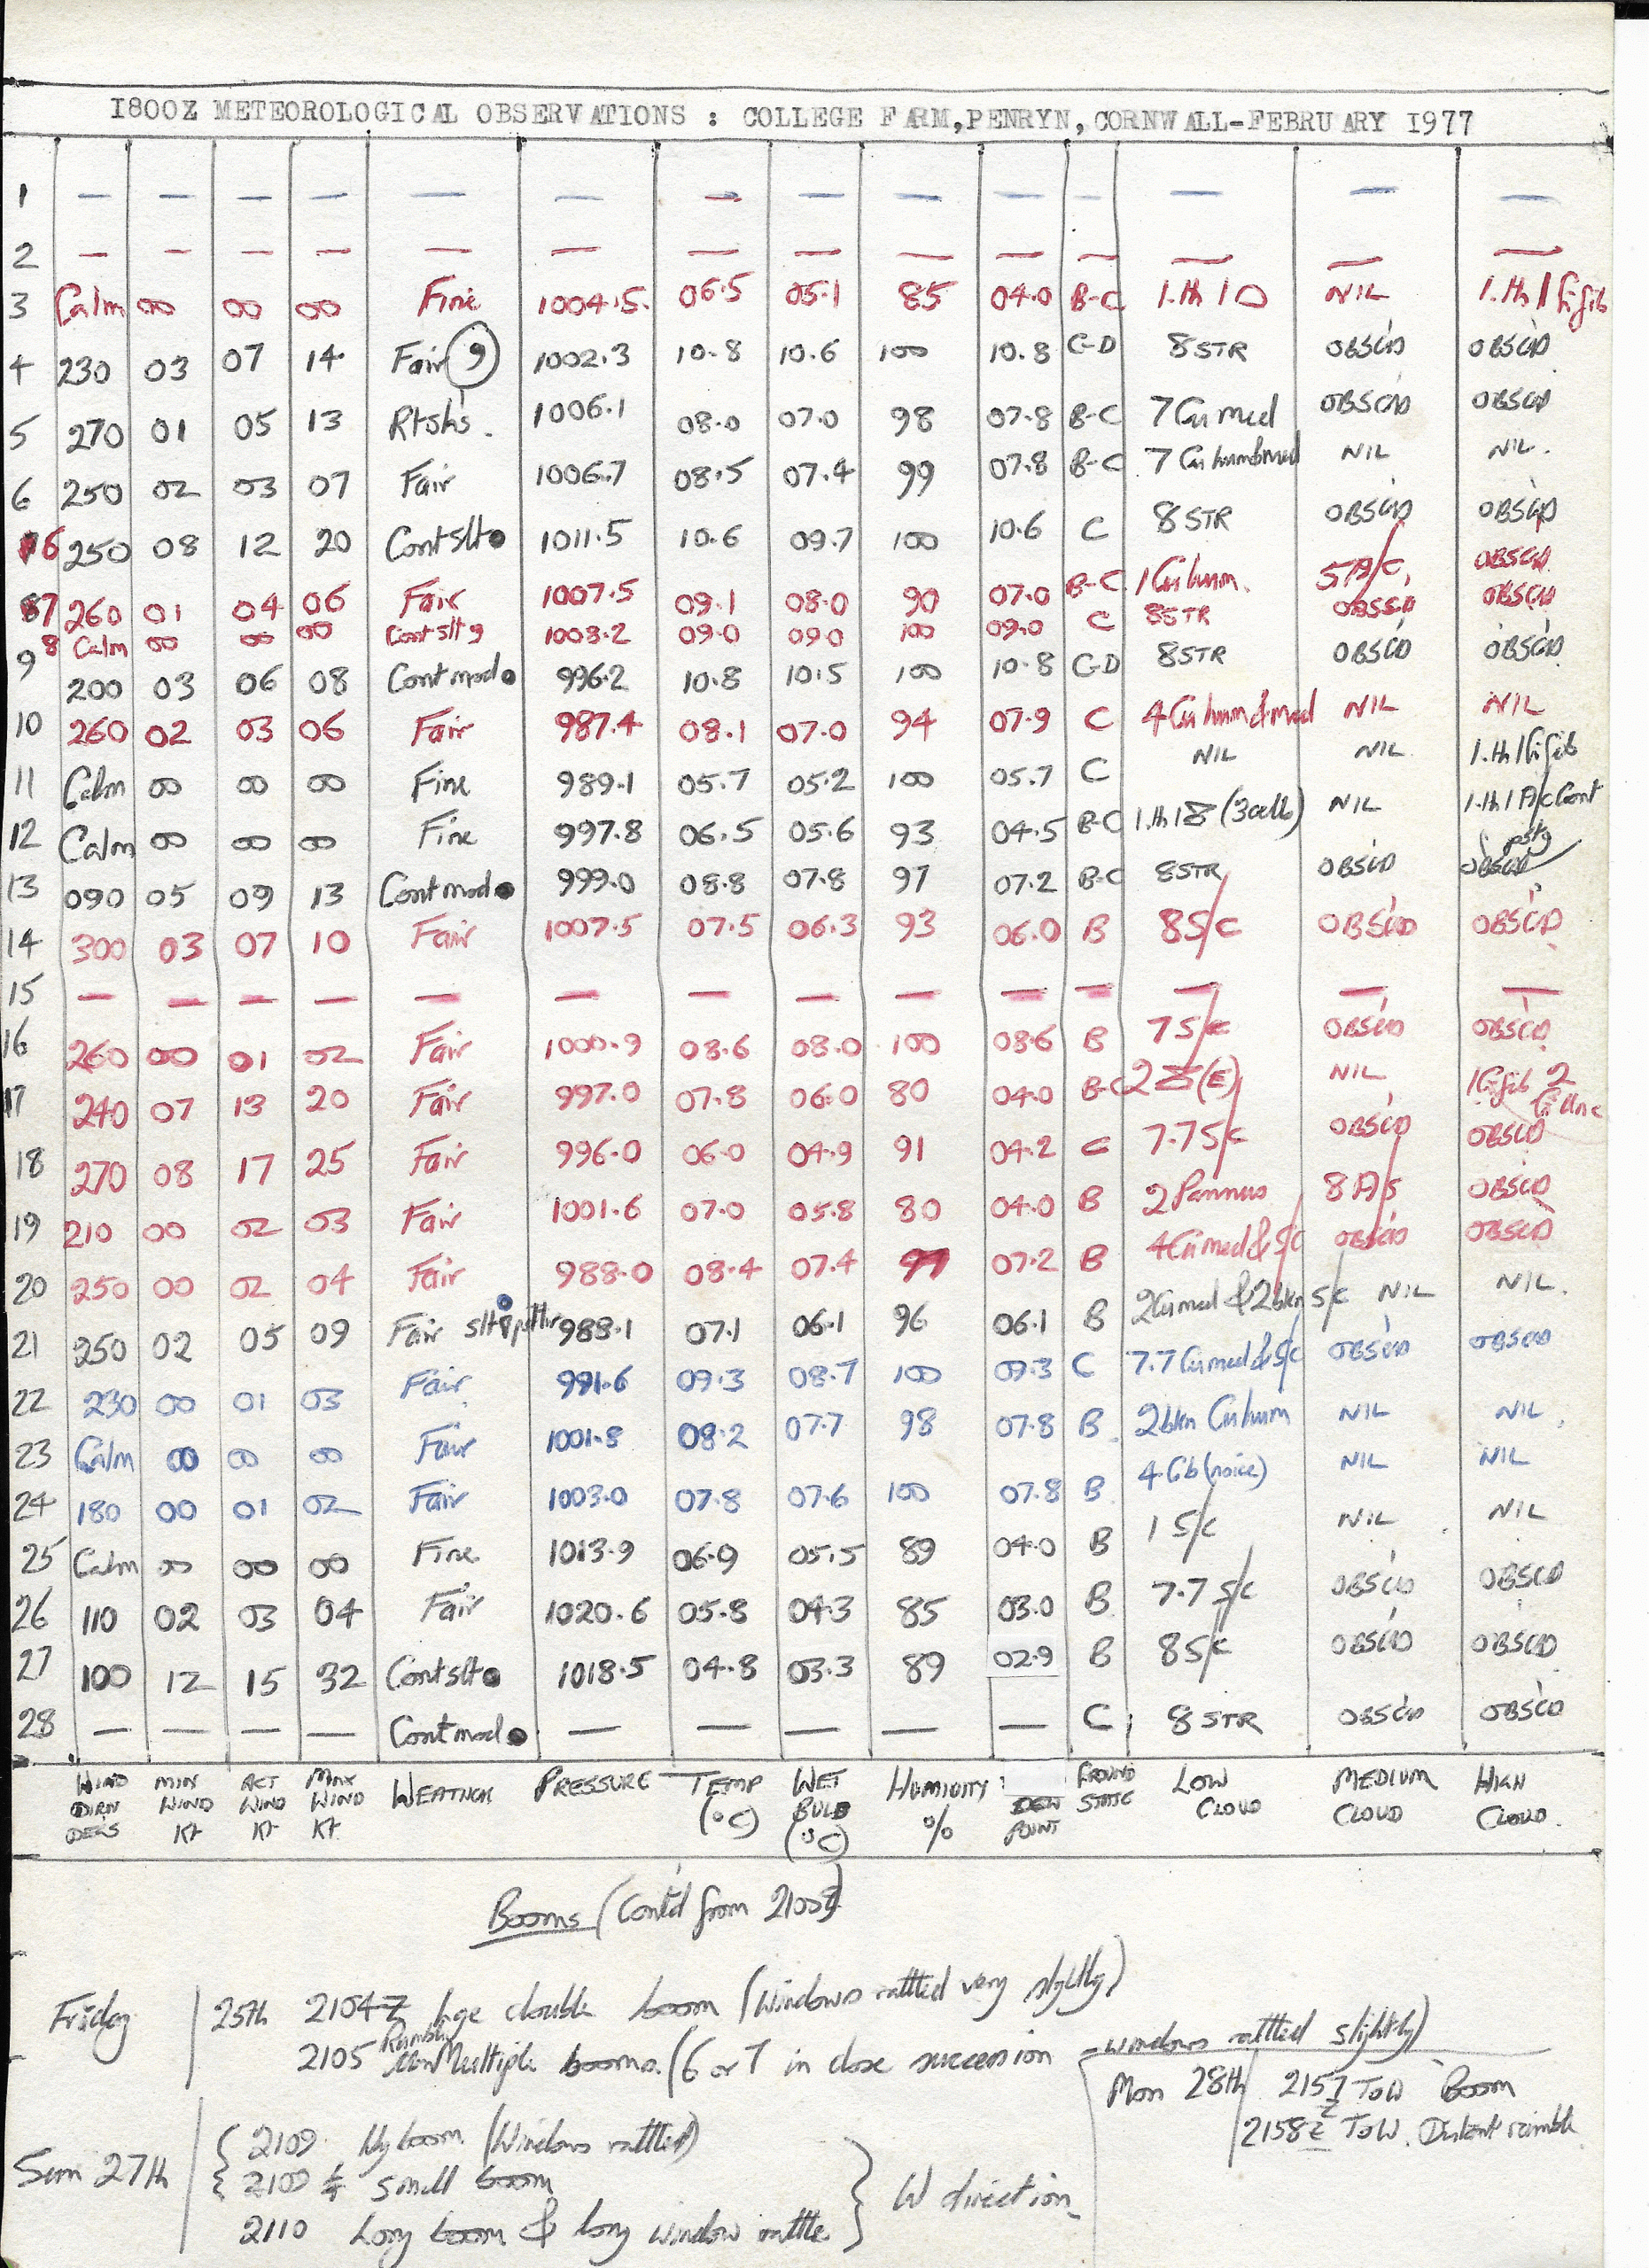 1800Z METEOROLOGICAL OBSERVATIONS : COLLEGE FARM, PENRYN, CORNWALL-FEBRUARY 1977
1 — — — — — — — — — — — — — —
2 — — — — — — — — — — — — — —
3 Calm 00 00 00 Fine 1004.5 06.5 05.1 85 04.0 B-C 1.th 1 NIL 1.th 1
4 230 03 07 14 Fair 1002.3 10.8 10.6 100 10.8 C-D 8 STR OBSC'D OBSC'D
5 270 01 05 13 1006.1 08.0 07.0 98 07.8 B-C 7 Cu med OBSC'D OBSC'D
6 250 02 03 07 Fair 1006.7 08.5 07.4 99 07.8 B-C 7 Cu NIL NIL.
6 250 08 12 20 Cont slt ● 1011.5 10.6 09.7 100 10.6 C 8 STR OBSC'D OBSC'D
7 260 01 04 06 Fair 1007.5 09.1 08.0 90 07.0 B-C 1 Cu hum. 5 A/C. OBSCD
8 Calm 00 00 00 Cont slt 9 1003.2 09.0 09.0 100 09.0 C 8 STR OBSCD
9 200 03 06 08 Cont mod ● 996.2 10.8 10.5 100 10.8 C-D 8 STR OBSC'D OBSC'D
10 260 02 03 06 Fair 987.4 08.1 07.0 94 07.9 C 4 Cu hum & med NIL NIL
11 Calm 00 00 00 Fine 989.1 05.7 05.2 100 05.7 C NIL NIL 1.th 1
12 Calm 00 00 00 Fine 997.8 06.5 05.6 93 04.5 B-C 1.th 1 NIL 1.th 1 A/c Cont
13 090 05 09 13 Cont mod ● 999.0 08.8 07.8 97 07.2 B-C 8 STR OBSC'D OBSCD
14 300 03 07 10 Fair 1007.5 07.5 06.3 93 06.0 B 8 S/C OBSC'D OBSC'D
15 — — — — — — — — — — — — — —
16 260 00 01 02 Fair 1000.9 08.6 08.0 100 08.6 B 7 S/C OBSC'D OBSC'D
17 240 07 13 20 Fair 997.0 07.8 06.0 80 04.0 B-C 2 (E) NIL
18 270 08 17 25 Fair 996.0 06.0 04.9 91 04.2 C 7.7 S/C OBSC'D OBSCD
19 210 00 02 03 Fair 1001.6 07.0 05.8 80 04.0 B 2 Pannus 8 A/s OBSCD
20 250 00 02 04 Fair 988.0 08.4 07.4 07.2 B 4 Cu med & S/C OBSC'D OBSCD
21 250 02 05 09 Fair slt 988.1 07.1 06.1 96 06.1 B 2 Cu med & 2 bkn S/C NIL NIL.
22 230 00 01 03 Fair 991.6 09.3 08.7 100 09.3 C 7.7 Cu med & S/C OBSC'D OBSCD
23 Calm 00 00 00 Fair 1001.8 08.2 07.7 98 07.8 B 2 bkn Cu hum NIL NIL.
24 180 00 01 02 Fair 1003.0 07.8 07.6 100 07.8 B 4 Cb (noice) NIL NIL
25 Calm 00 00 00 Fine 1013.9 06.9 05.5 89 04.0 B 1 S/C NIL NIL
26 110 02 03 04 Fair 1020.6 05.8 04.3 85 03.0 B 7.7 S/C OBSC'D OBSCD
27 100 12 15 32 Cont slt ● 1018.5 04.8 03.3 89 02.9 B 8 S/C OBSC'D OBSC'D
28 — — — — Cont mod ● — — — — — C 8 STR OBSC'D OBSC'D
WIND DIRN DEGS MIN WIND KT ACT WIND KT MAX WIND KT WEATHER PRESSURE TEMP (°C) WET BULB (°C) HUMIDITY % DEW POINT GROUND STATE LOW CLOUD MEDIUM CLOUD HIGH CLOUD.
Booms (Cont'd from
Friday 25th 2104Z lge double boom (Windows rattled very slightly)
2105 Multiple booms. (6 or 7 in close succession - windows rattled slightly)
Mon 28th 2157Z To W Boom
2158Z To W. Distant rumble
Sun 27th 2109 boom (Windows rattled)
2109 ½ small boom
2110 Long boom & long window rattle
W direction